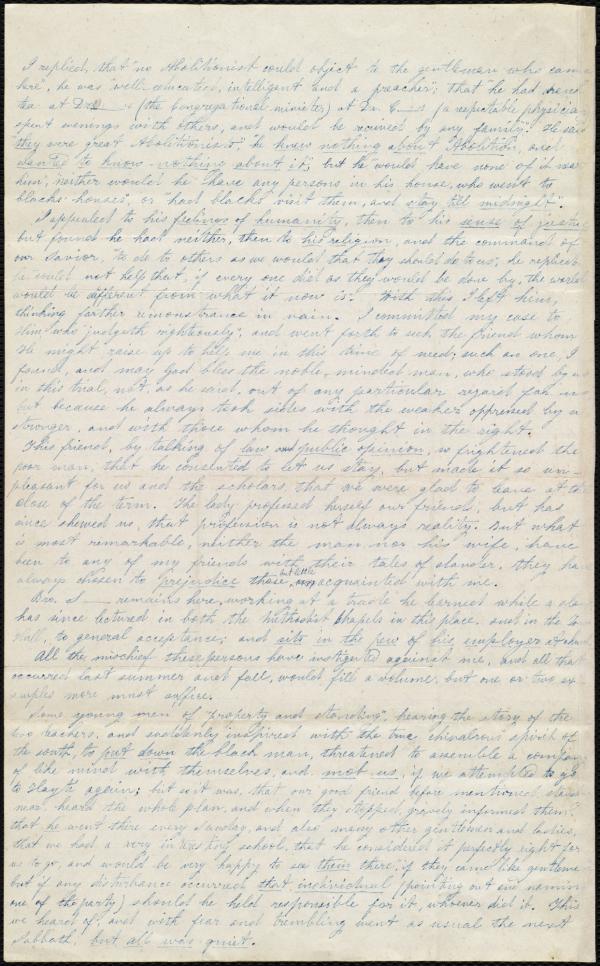 I replied, that "no Abolitionist could object to the gentleman who came
here", he was "well-educated, intelligent and a preacher"; that he had
tea at Dr. (the Congregational minister) at Dr. C——s (a respectable physician
spent evenings with others, and would be received by any family". He said
"they were great Abolitionists" he knew nothing about Abolition, and
wanted to know nothing about it", but he would have none of it near
him, neither would he "have any persons in his house, who went to
blacks' houses", or had blacks visit them, and stay till midnight".
I appealed to his feelings of humanity, then to his sense of justice
but found he had neither, then to his religion, and the command of
our Savior, to do to others as we would that they should do to us; he replied
he could not help that, if every one did as they would be done by, the world
would be different from what it now is". With this I left him,
thinking farther remonstrance in vain. I committed my case to
Him who "judgeth righteously", and went forth to seek the friend whom
He might raise up to help me in this time of need; such an one, I
found, and may God bless the noble-minded man, who stood by us
in this trial, not, as he said, out of any particular regard for us
but because he always took sides with the weaker oppressed by a
stronger, and with those whom he thought in the right.
This friend, by talking of law and public opinion, so frightened the
poor man, that he consented to let us stay, but made it so un-
pleasant for us and the scholars, that we were glad to leave at the
close of the term. The lady professed herself our friend, but has
since shewed us, that profession is not always reality. But what
is most remarkable, neither the man nor his wife, have
been to any of my friends with their tales of slander, they have
always chosen to prejudice those, but little acquainted with me.
Bro. S—— remains here, working at a trade he learned while a slave
has since lectured in both the Methodist chapels in this place, and in the
Hall, to general acceptance; and sits in the pew of his employer
All the mischief these persons have instigated against me, and all that
occurred last summer and fall, would fill a volume, but one or two ex-
amples more must suffice.
Some young men of "property and standing", hearing the story of the
two teachers, and suddenly inspired with the true chivalrous spirit of
the south, to put down the black man, threatened to assemble a company
of like mind with themselves, and mob us, if we attempted to go
to again; but so it was, that our good friend before mentioned,
near, heard the whole plan, and when they stopped, gravely informed them,
that he went there every Sunday, and also many other gentlemen and ladies,
that we had a very interesting school, that he considered it perfectly right for
us to go, and would be very happy to see them there, if they came like gentlemen
but if any disturbance occurred that individual (pointing out and naming
one of the party) should be held responsible for it, whoever did it. This
we heard of, and with fear and trembling went as usual the next
Sabbath, but all was quiet.